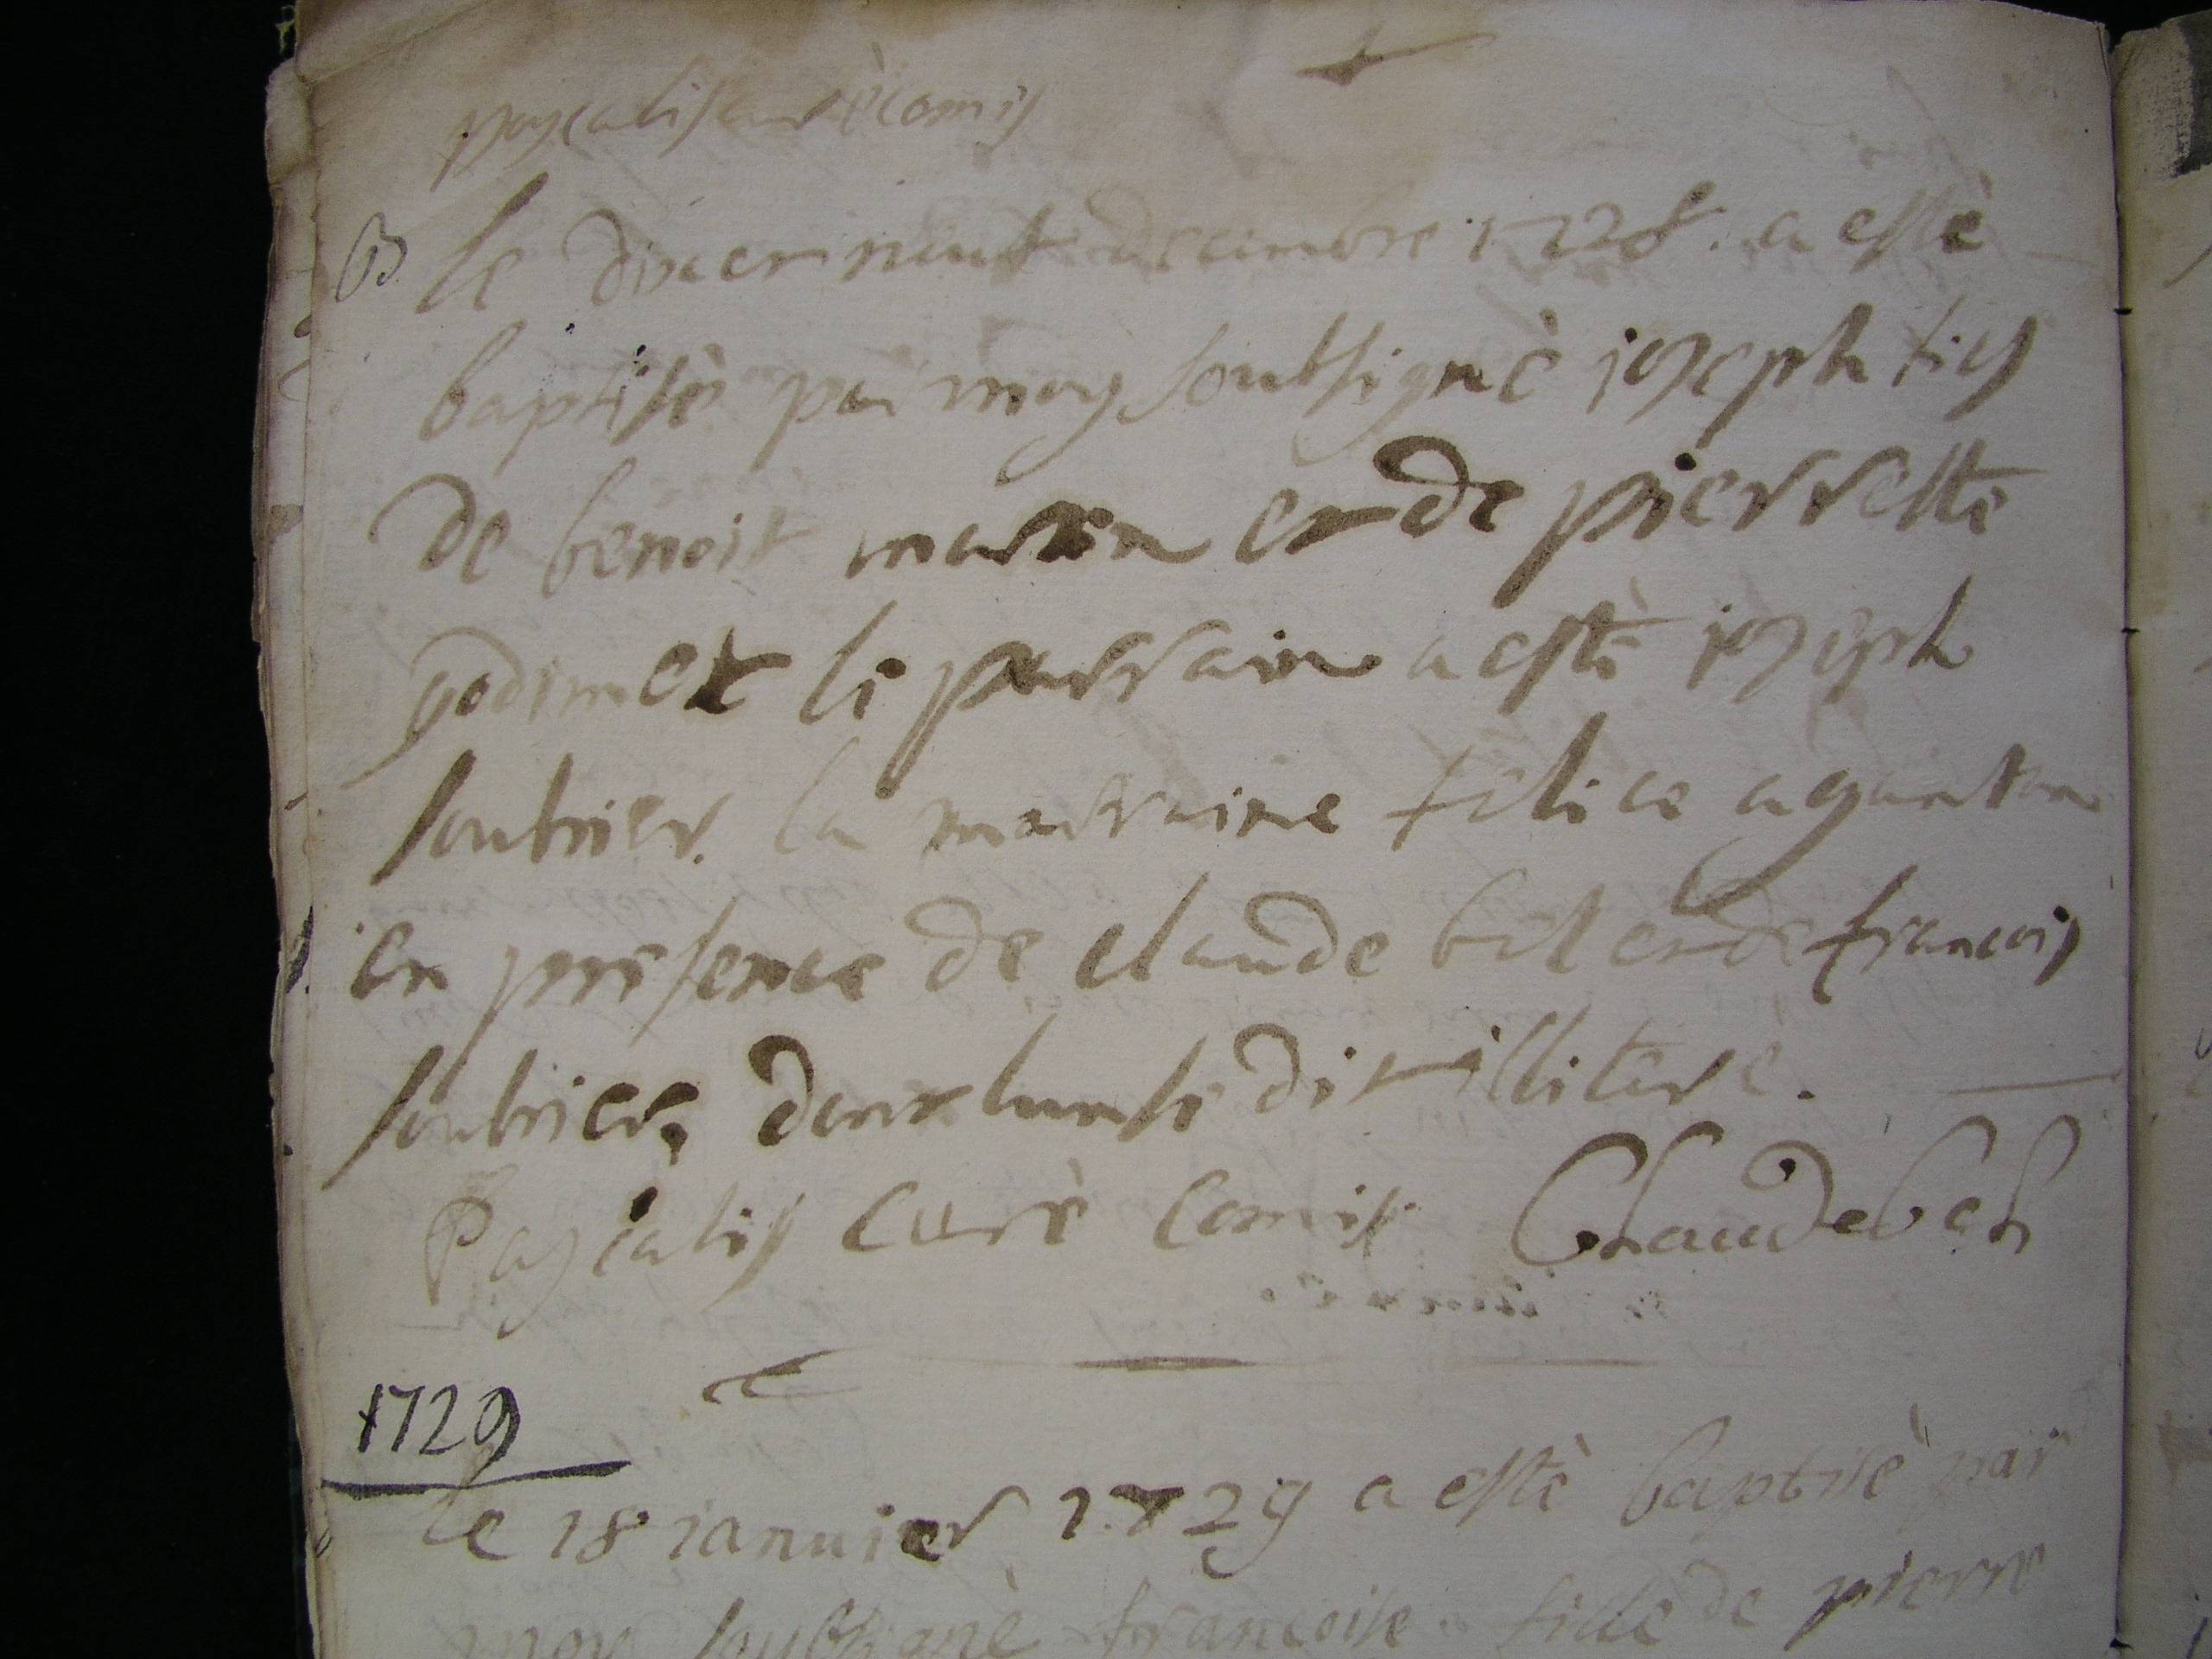 pascalis curè comis
B le dixerneuf decembre 1728. a estè
baptisè par moy soubsignè joseph fils
de benoit martin et de pierrette
godimet le parrain a estè joseph
soubrier. la marraine felice
en presence de claude bel et de francois
soubrier, dont lun se dit illiterè.
Pascalis Curè Comis Claude bel
1729
le 18 januier 1729 a estè baptisè par
moy soubsignè francoise fille de pierre